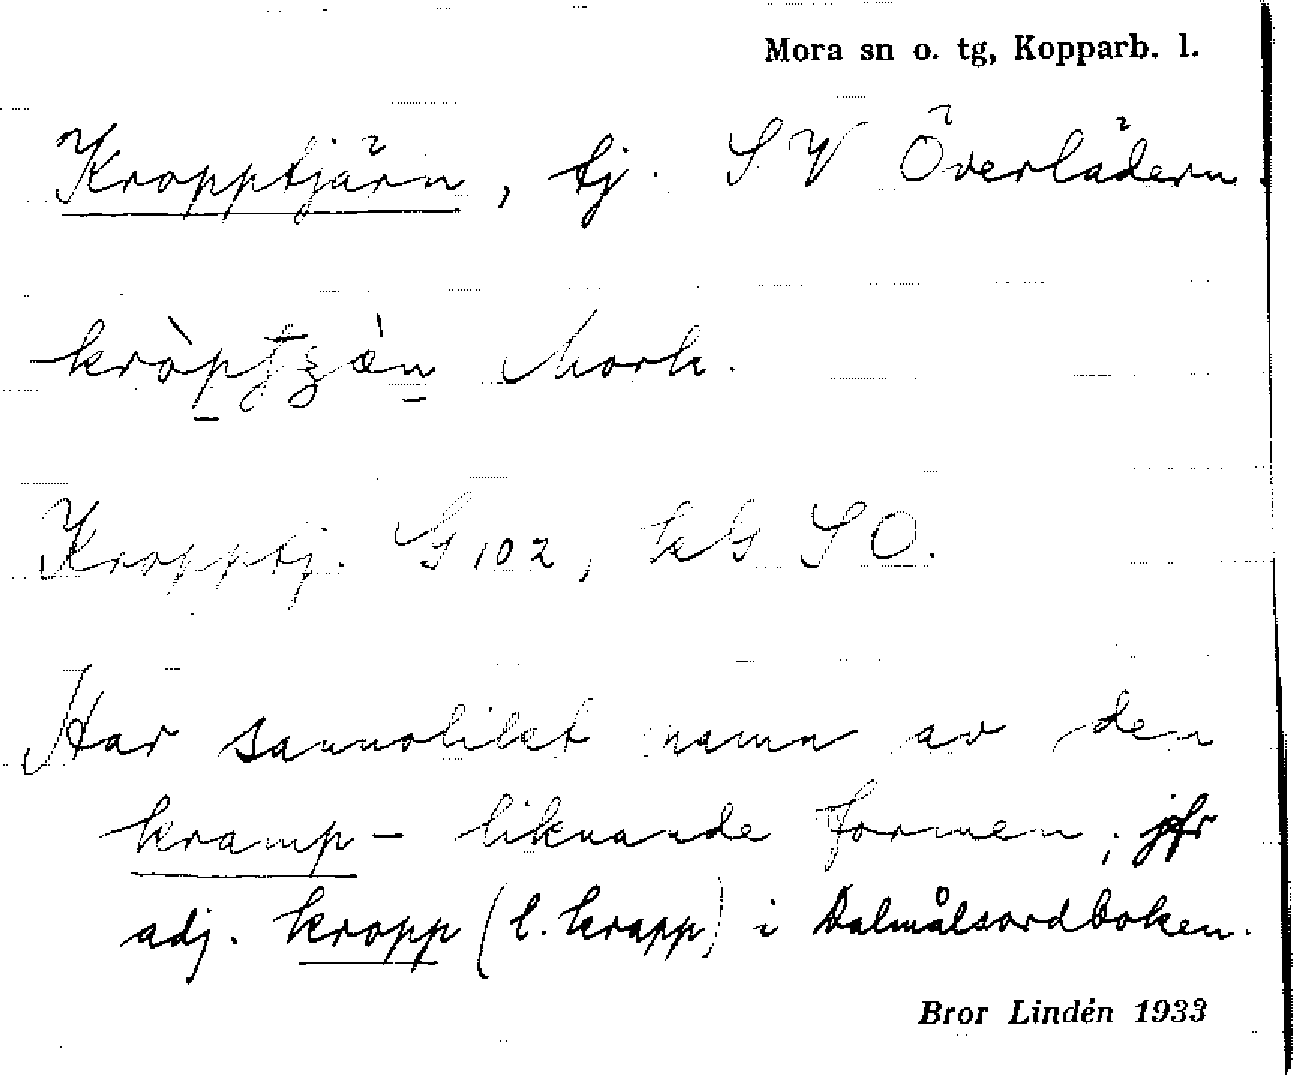 Mora sn o. tg, Kopparb. l.
Kropptjärn, tj. SV Överlädern.
Mork.
Kropptj. G 102, SO.
Har sannolikt namn av den
kramp- liknande formen; jfr
adj. kropp (l. krapp) i Dalmålsordboken.
Bror Lindén 1933